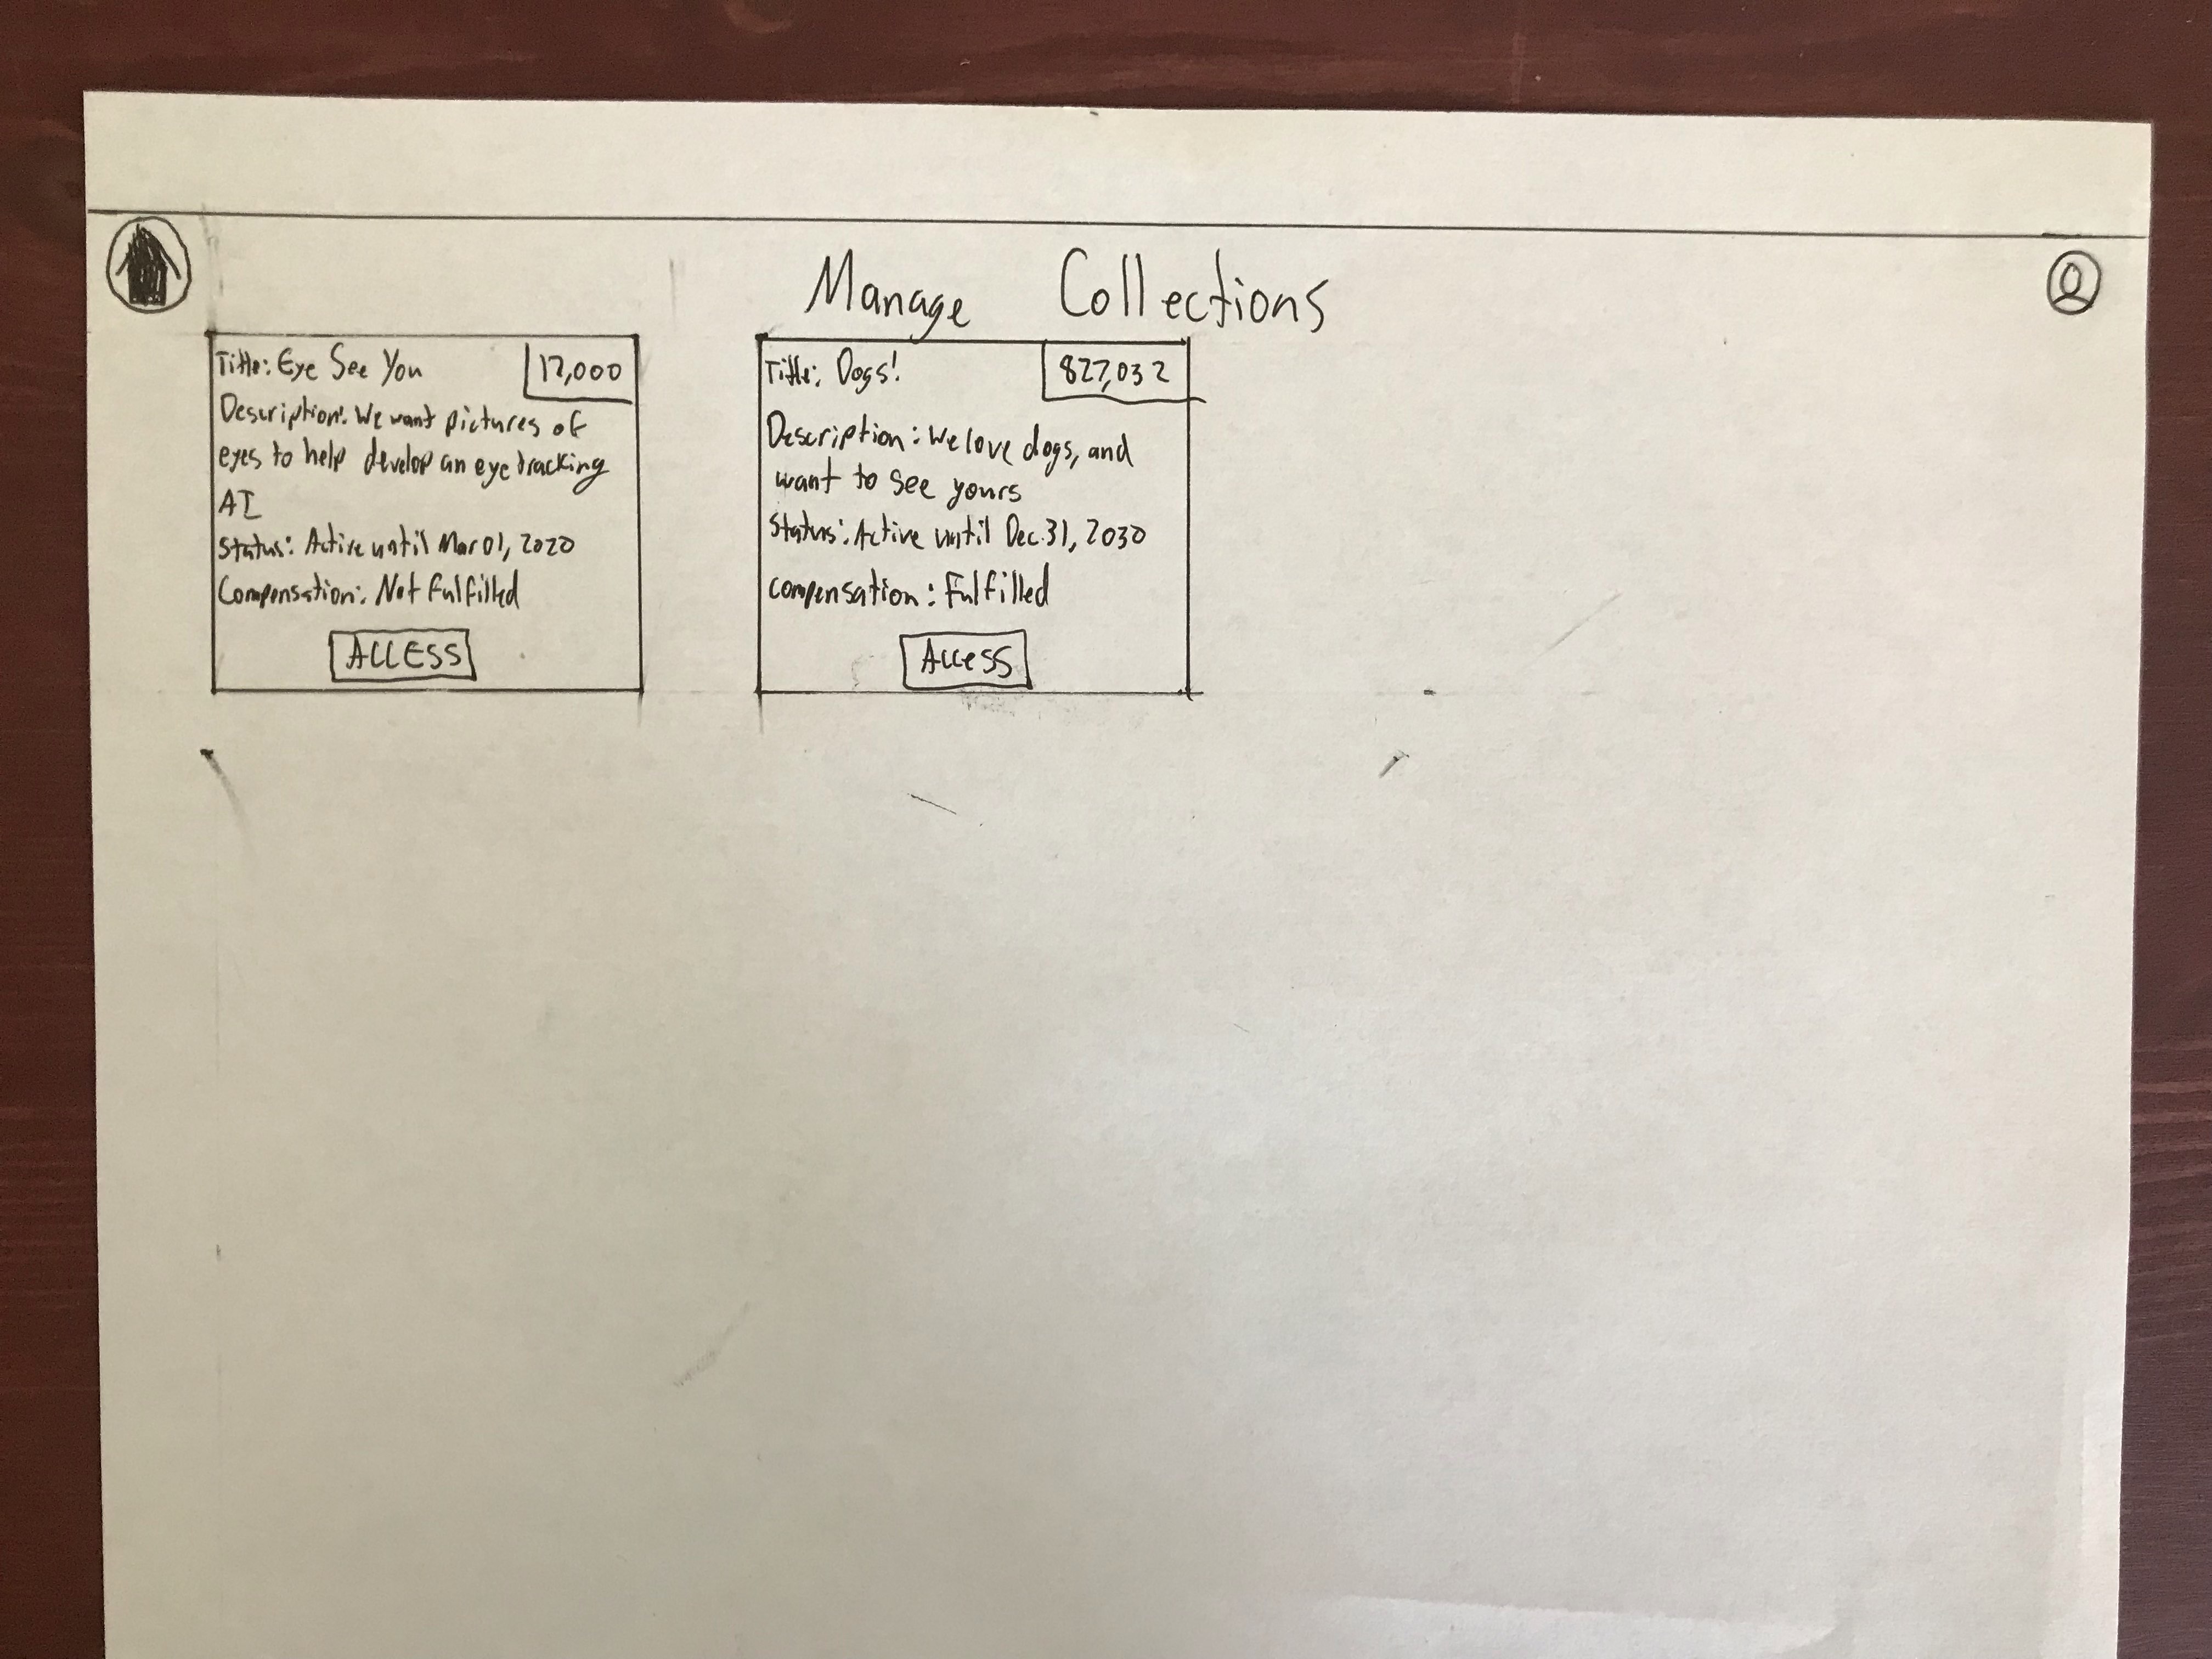 Manage Collections
Title: Eye See You
12,000
Description: We want pictures of
eyes to help develop an eye tracking
AI
Status: Active until Mar 01, 2020
Compensation: Not fulfilled
ACCESS
Title: Dogs!
827,032
Description: We love dogs, and
want to see yours
Status: Active until Dec. 31, 2030
compensation: Fulfilled
Access